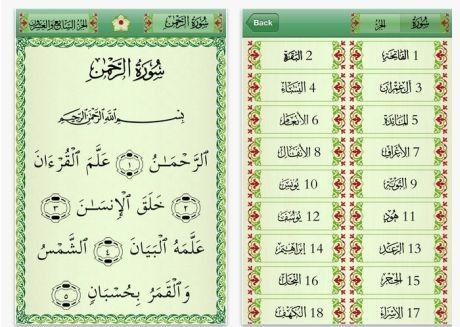 سُورَةُ الرَّحْمَٰن الجزء السابع والعشرون
سُورَةُ الرَّحْمَٰن
بِسْمِ اللَّهِ الرَّحْمَٰنِ الرَّحِيمِ
ٱلرَّحْمَـٰنُ ١ عَلَّمَ ٱلْقُرْءَانَ
٢ خَلَقَ ٱلْإِنسَـٰنَ ٣
عَلَّمَهُ ٱلْبَيَانَ ٤ ٱلشَّمْسُ
وَٱلْقَمَرُ بِحُسْبَانٍ ٥
Back
سورة الجزء
1 الفاتحة 2 البقرة
3 آل عمران 4 النساء
5 المائدة 6 الأنعام
7 الأعراف 8 الأنفال
9 التوبة 10 يونس
11 هود 12 يوسف
13 الرعد 14 إبراهيم
15 الحجر 16 النحل
17 الإسراء 18 الكهف